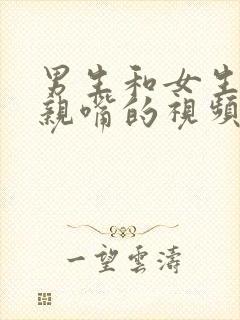 男生和女生
親嘴的視頻
一望雲濤